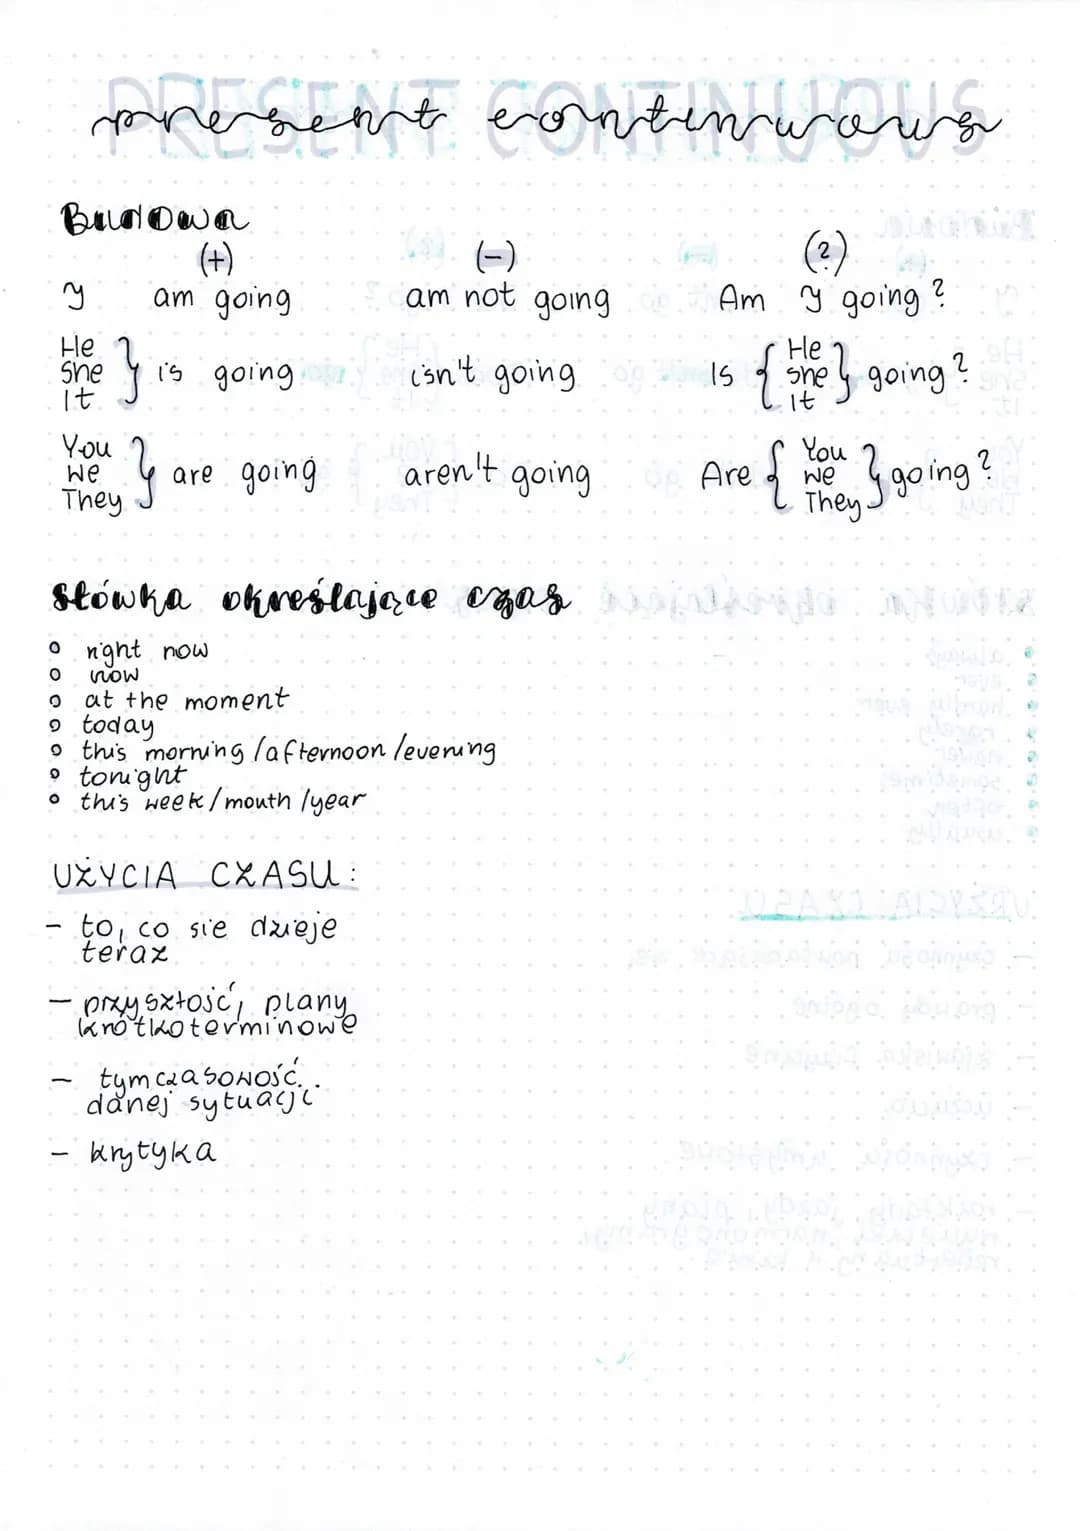 PRESENT CONTINUOUS
present continuous
Budowa
(+) (-) (?)
I am going am not going Am I going?
He
She
It
is going isn't going Is
He
She
it
going?
You
we
They
are going aren't going Are
You
we
They
going?
słówka określające czas
right now
now
at the moment
today
this morning /afternoon /evening
tonight
this week/mouth /year
UŻYCIA CZASU:
- to, co sie dzieje
teraz
- przyszłość, plany
krótkoterminowe
- tymczasowość
danej sytuacji
- krytyka